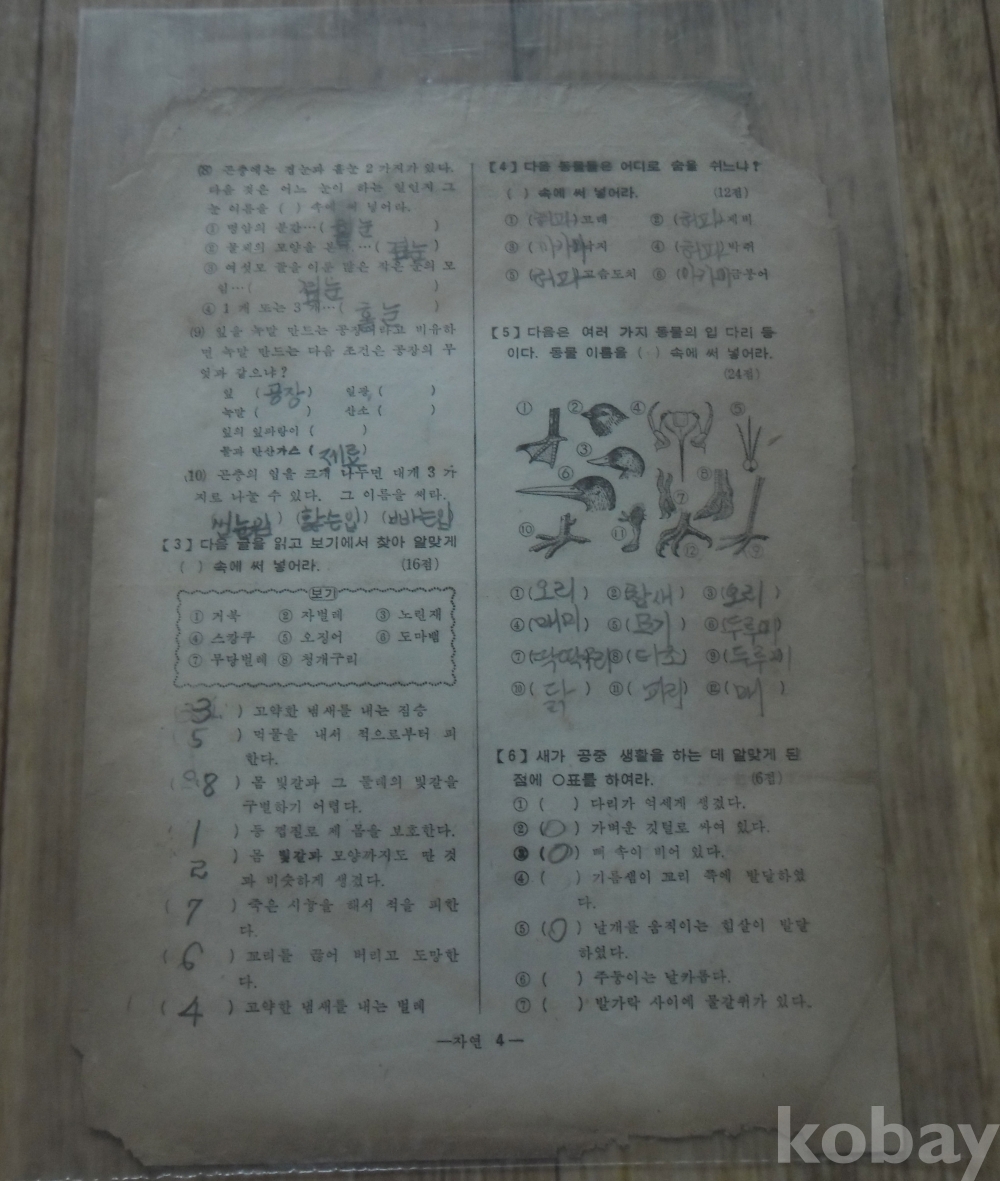 (8) 곤충에는 겹눈과 홑눈 2가지가 있다.
다음 것은 어느 눈이 하는 일인지 그
눈 이름을 ( ) 속에 써 넣어라.
① 명암의 분간…( 홑눈 )
② 물체의 모양을 본다.…( 겹눈 )
③ 여섯모 꼴을 이룬 많은 작은 눈의 모
임…( 겹눈 )
④ 1개 또는 3개…( 홑눈 )
(9) 잎을 녹말 만드는 공장이라고 비유하
면 녹말 만드는 다음 조건은 공장의 무
엇과 같으냐?
잎 ( 공장 ) 일광 ( )
녹말 ( ) 산소 ( )
잎의 잎파랑이 ( )
물과 탄산가스 ( 재료 )
(10) 곤충의 입을 크게 나누면 대개 3가
지로 나눌 수 있다. 그 이름을 써라.
씹는입 ) (핥는입) (빠는입
【3】다음 글을 읽고 보기에서 찾아 알맞게
( ) 속에 써 넣어라. (16점)
보기
① 거북 ② 자벌레 ③ 노린재
④ 스컹쿠 ⑤ 오징어 ⑥ 도마뱀
⑦ 무당벌레 ⑧ 청개구리
( 3 ) 고약한 냄새를 내는 짐승
( 5 ) 먹물을 내서 적으로부터 피
한다.
( 8 ) 몸 빛갈과 그 둘레의 빛갈을
구별하기 어렵다.
( 1 ) 등 껍질로 제 몸을 보호한다.
2 ) 몸 빛갈과 모양까지도 딴 것
과 비슷하게 생겼다.
( 7 ) 죽은 시늉을 해서 적을 피한
다.
( 6 ) 꼬리를 끊어 버리고 도망한
다.
( 4 ) 고약한 냄새를 내는 벌레
【4】다음 동물들은 어디로 숨을 쉬느냐?
( ) 속에 써 넣어라. (12점)
① (허파)고래 ② (허파)제비
③ (아가미)낙지 ④ (허파)박쥐
⑤ (허파)고슴도치 ⑥ (아가미)금붕어
【5】다음은 여러 가지 동물의 입 다리 등
이다. 동물 이름을 ( ) 속에 써 넣어라.
(24점)
① ② ④ ⑤
③
⑥ ⑦ ⑧
⑩ ⑪ ⑫ ⑨
①(오리) ②(참새) ③(오리)
④(매미) ⑤(모기) ⑥(두루미)
⑦(딱딱구리) ⑧(타조) ⑨(두루미)
⑩(닭) ⑪(파리) ⑫(매)
【6】새가 공중 생활을 하는 데 알맞게 된
점에 ○표를 하여라. (6점)
① ( ) 다리가 억세게 생겼다.
② (○) 가벼운 깃털로 싸여 있다.
③ (○) 뼈 속이 비어 있다.
④ ( ) 기름샘이 꼬리 쪽에 발달하였
다.
⑤ (○) 날개를 움직이는 힘살이 발달
하였다.
⑥ ( ) 주둥이는 날카롭다.
⑦ ( ) 발가락 사이에 물갈퀴가 있다.
—자연 4—
kobay